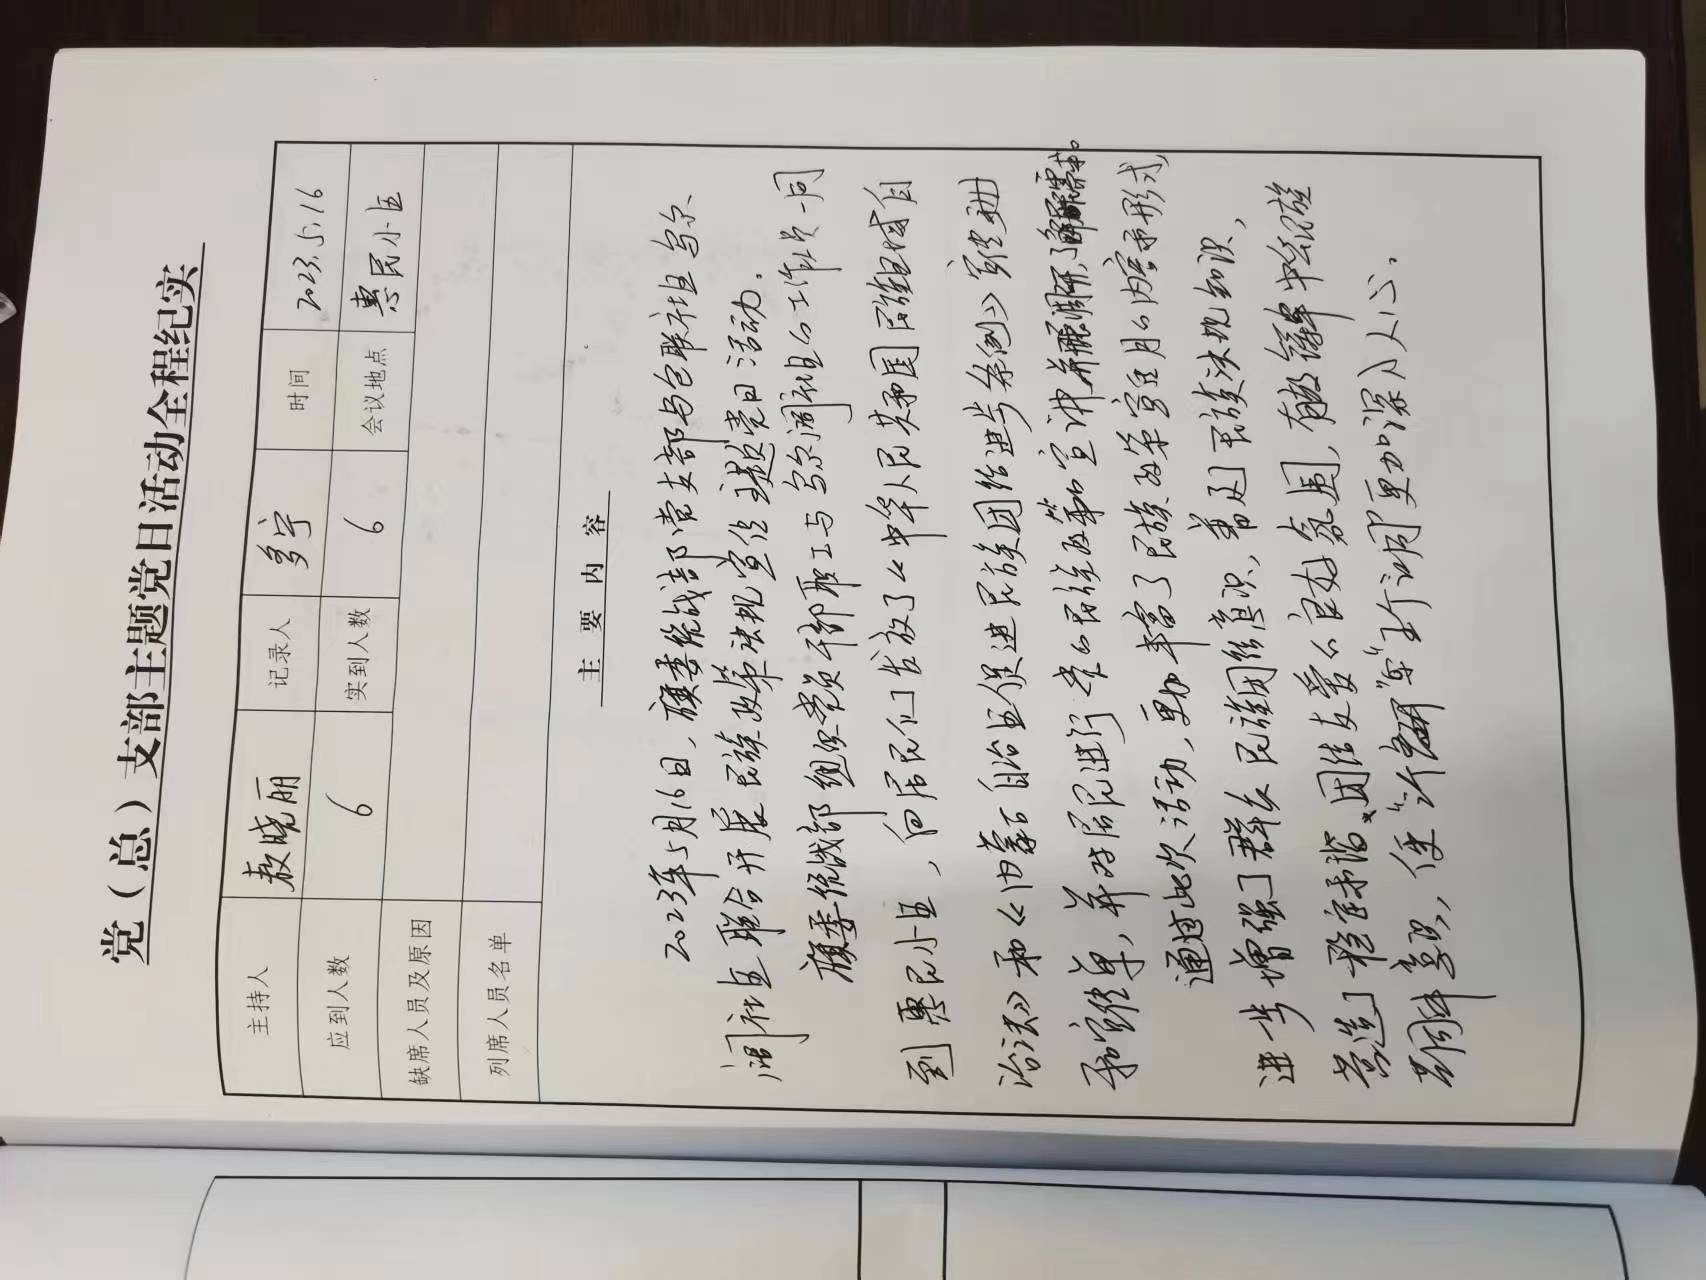 党（总）支部主题党日活动全程纪实
主持人 敖晓丽 记录人 多宁 时间 2023.5.16
应到人数 6 实到人数 6 会议地点 惠民小区
缺席人员及原因
列席人员名单
主要内容
2023年5月16日，旗委统战部党支部与包联社区乌尔
涧社区联合开展民族政策法规宣传主题党日活动。
旗委统战部组织党员干部职工与乌尔涧社区的工作人员一同
到惠民小区，向居民们发放了《中华人民共和国民族区域自
治法》和《内蒙古自治区促进民族团结进步条例》宣传册
和宣传单，并对居民进行党的民族政策宣讲
通过此次活动，更加丰富了民族政策宣传月的内容和形式，
进一步增强了群众民族团结意识，普及民族法规知识，
营造了稳定和谐、团结友爱的良好氛围，有效铸牢中华民族
共同体意识，使“三个离不开”“五个认同”更加深入人心。